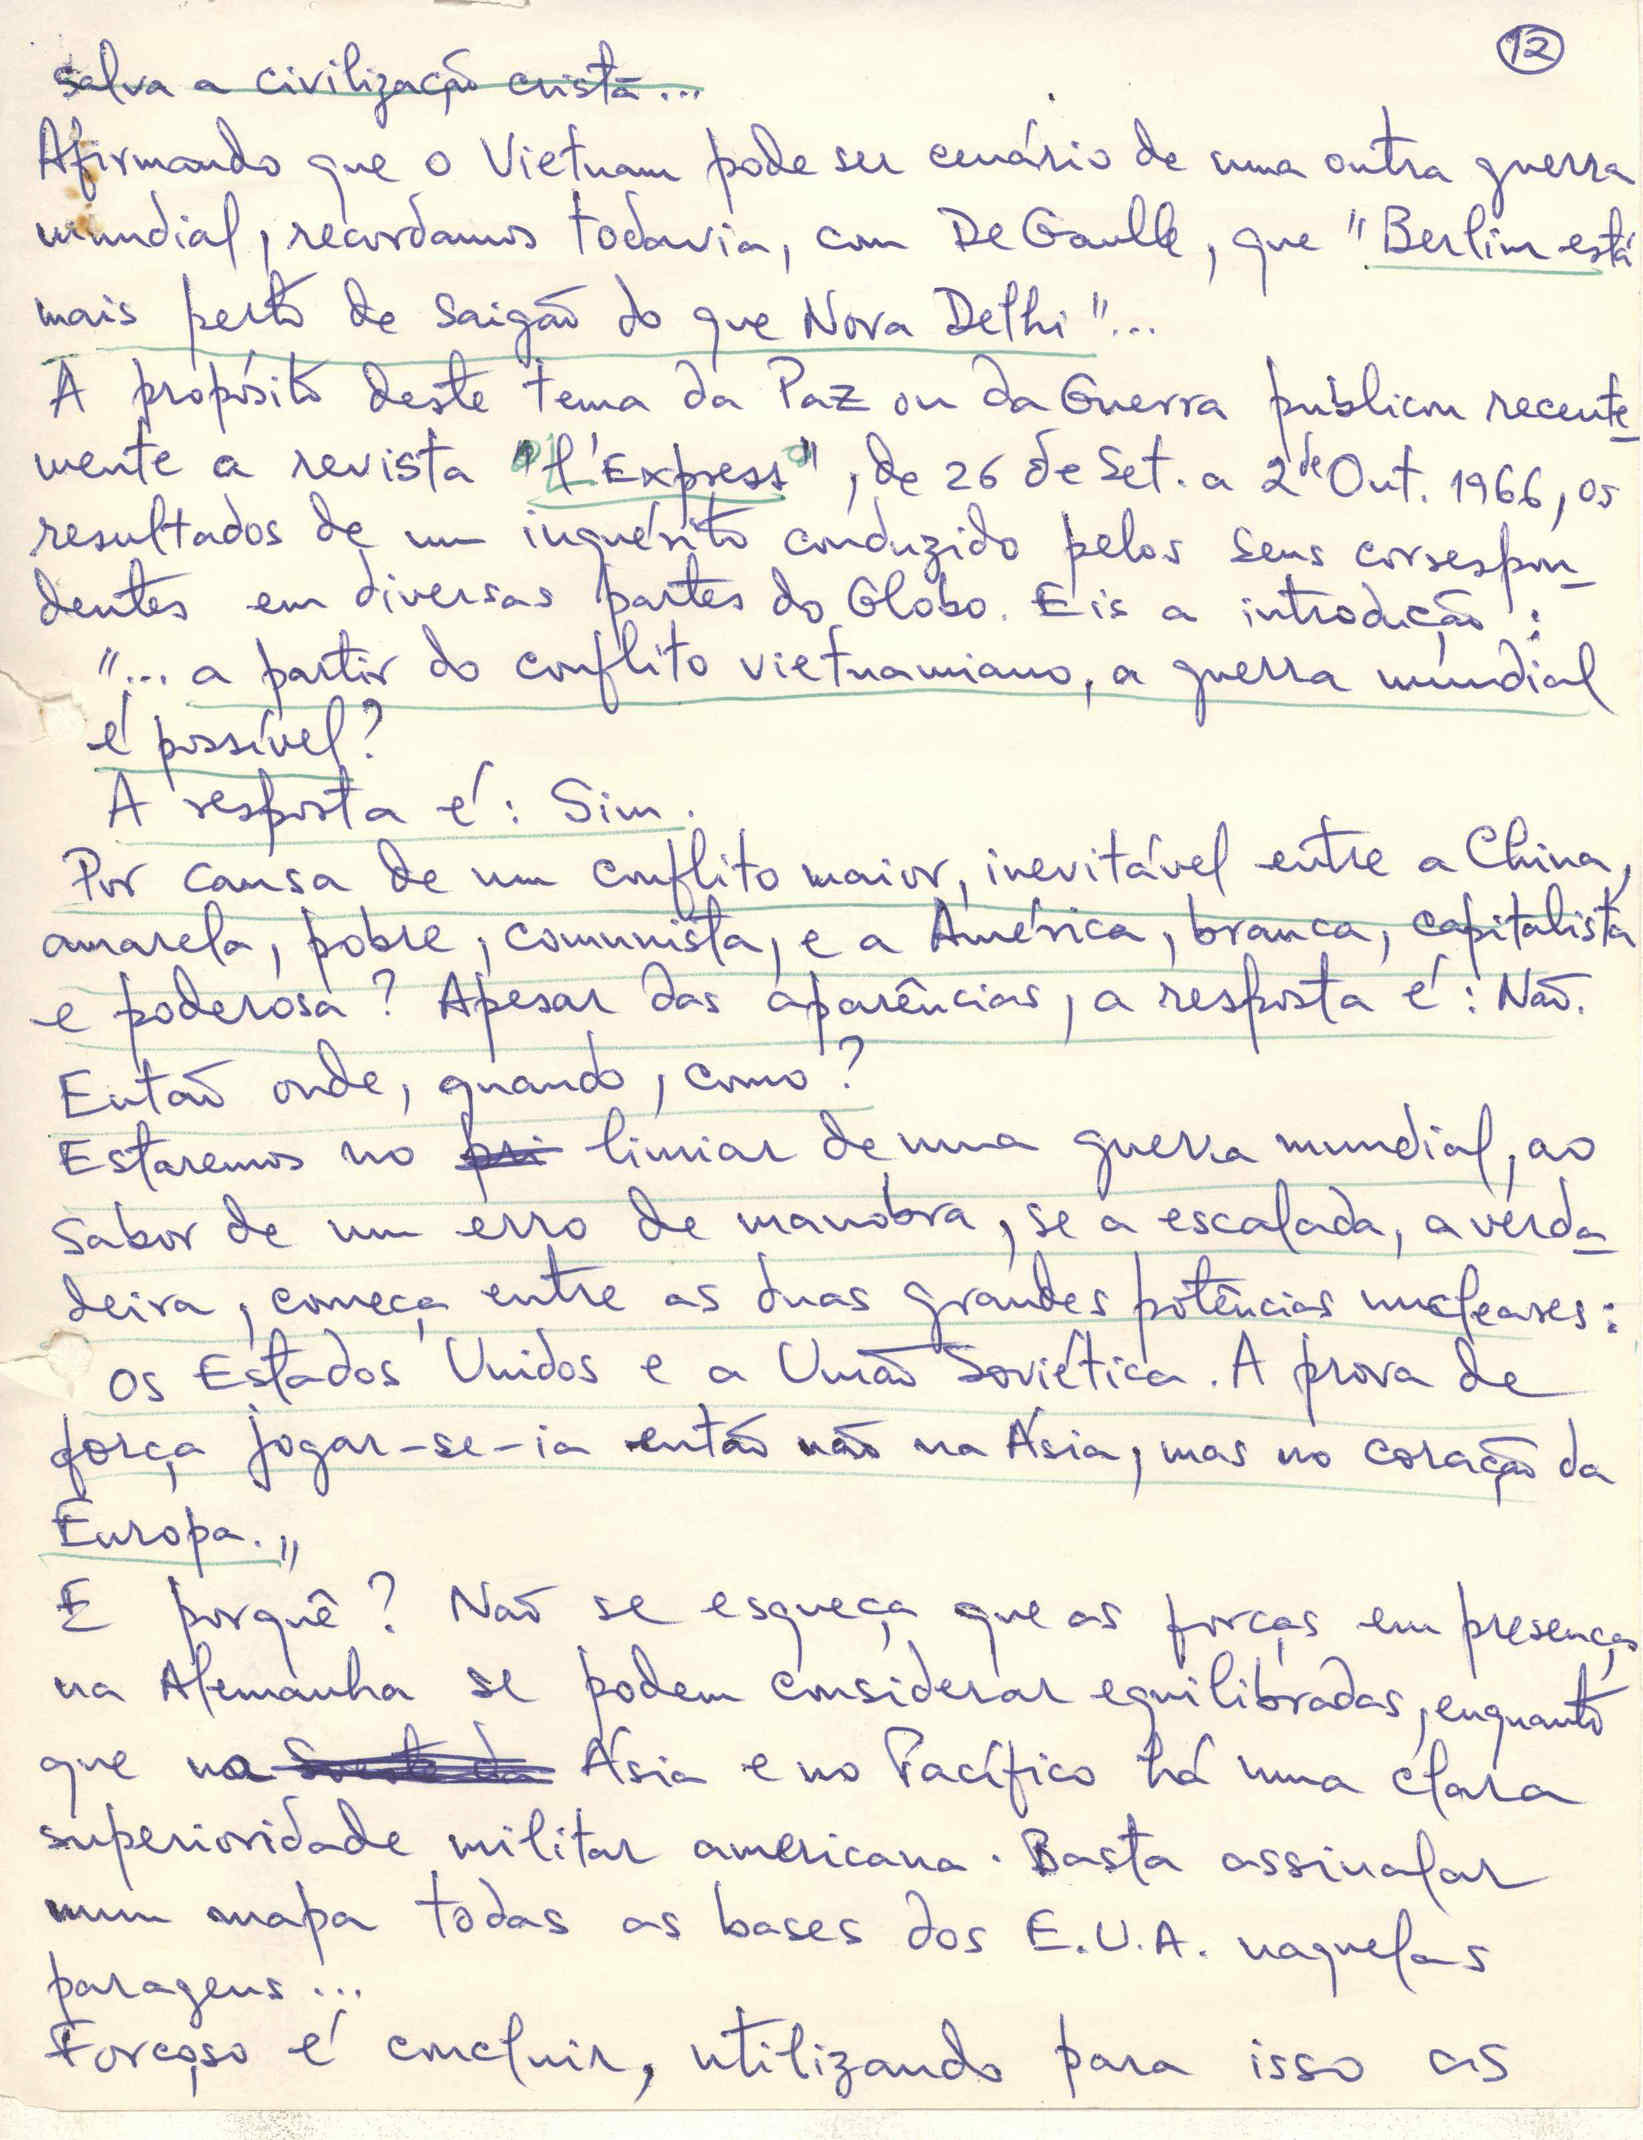 12
salva a civilização cristã...
Afirmando que o Vietnam pode ser cenário de uma outra guerra
mundial, recordamos todavia, com De Gaulle, que "Berlim está
mais perto de Saigão do que Nova Delhi"...
A propósito deste tema da Paz ou da Guerra publicou recente-
mente a revista "L'Express", de 26 de Set. a 2 de Out. 1966, os
resultados de um inquérito conduzido pelos seus correspon-
dentes em diversas partes do Globo. Eis a introdução:
"... a partir do conflito vietnamiano, a guerra mundial
é possível?
A resposta é: Sim.
Por causa de um conflito maior, inevitável entre a China,
amarela, pobre, comunista, e a América, branca, capitalista
e poderosa? Apesar das aparências, a resposta é: Não.
Então onde, quando, como?
Estaremos no pri limiar de uma guerra mundial, ao
sabor de um erro de manobra, se a escalada, a verda-
deira, começa entre as duas grandes potências nucleares:
os Estados Unidos e a União Soviética. A prova de
força jogar-se-ia então não na Ásia, mas no coração da
Europa."
E porquê? Não se esqueça que as forças em presença,
na Alemanha se podem considerar equilibradas, enquanto
que na Ásia e no Pacífico há uma clara
superioridade militar americana. Basta assinalar
num mapa todas as bases dos E.U.A. naquelas
paragens...
Forçoso é concluir, utilizando para isso as